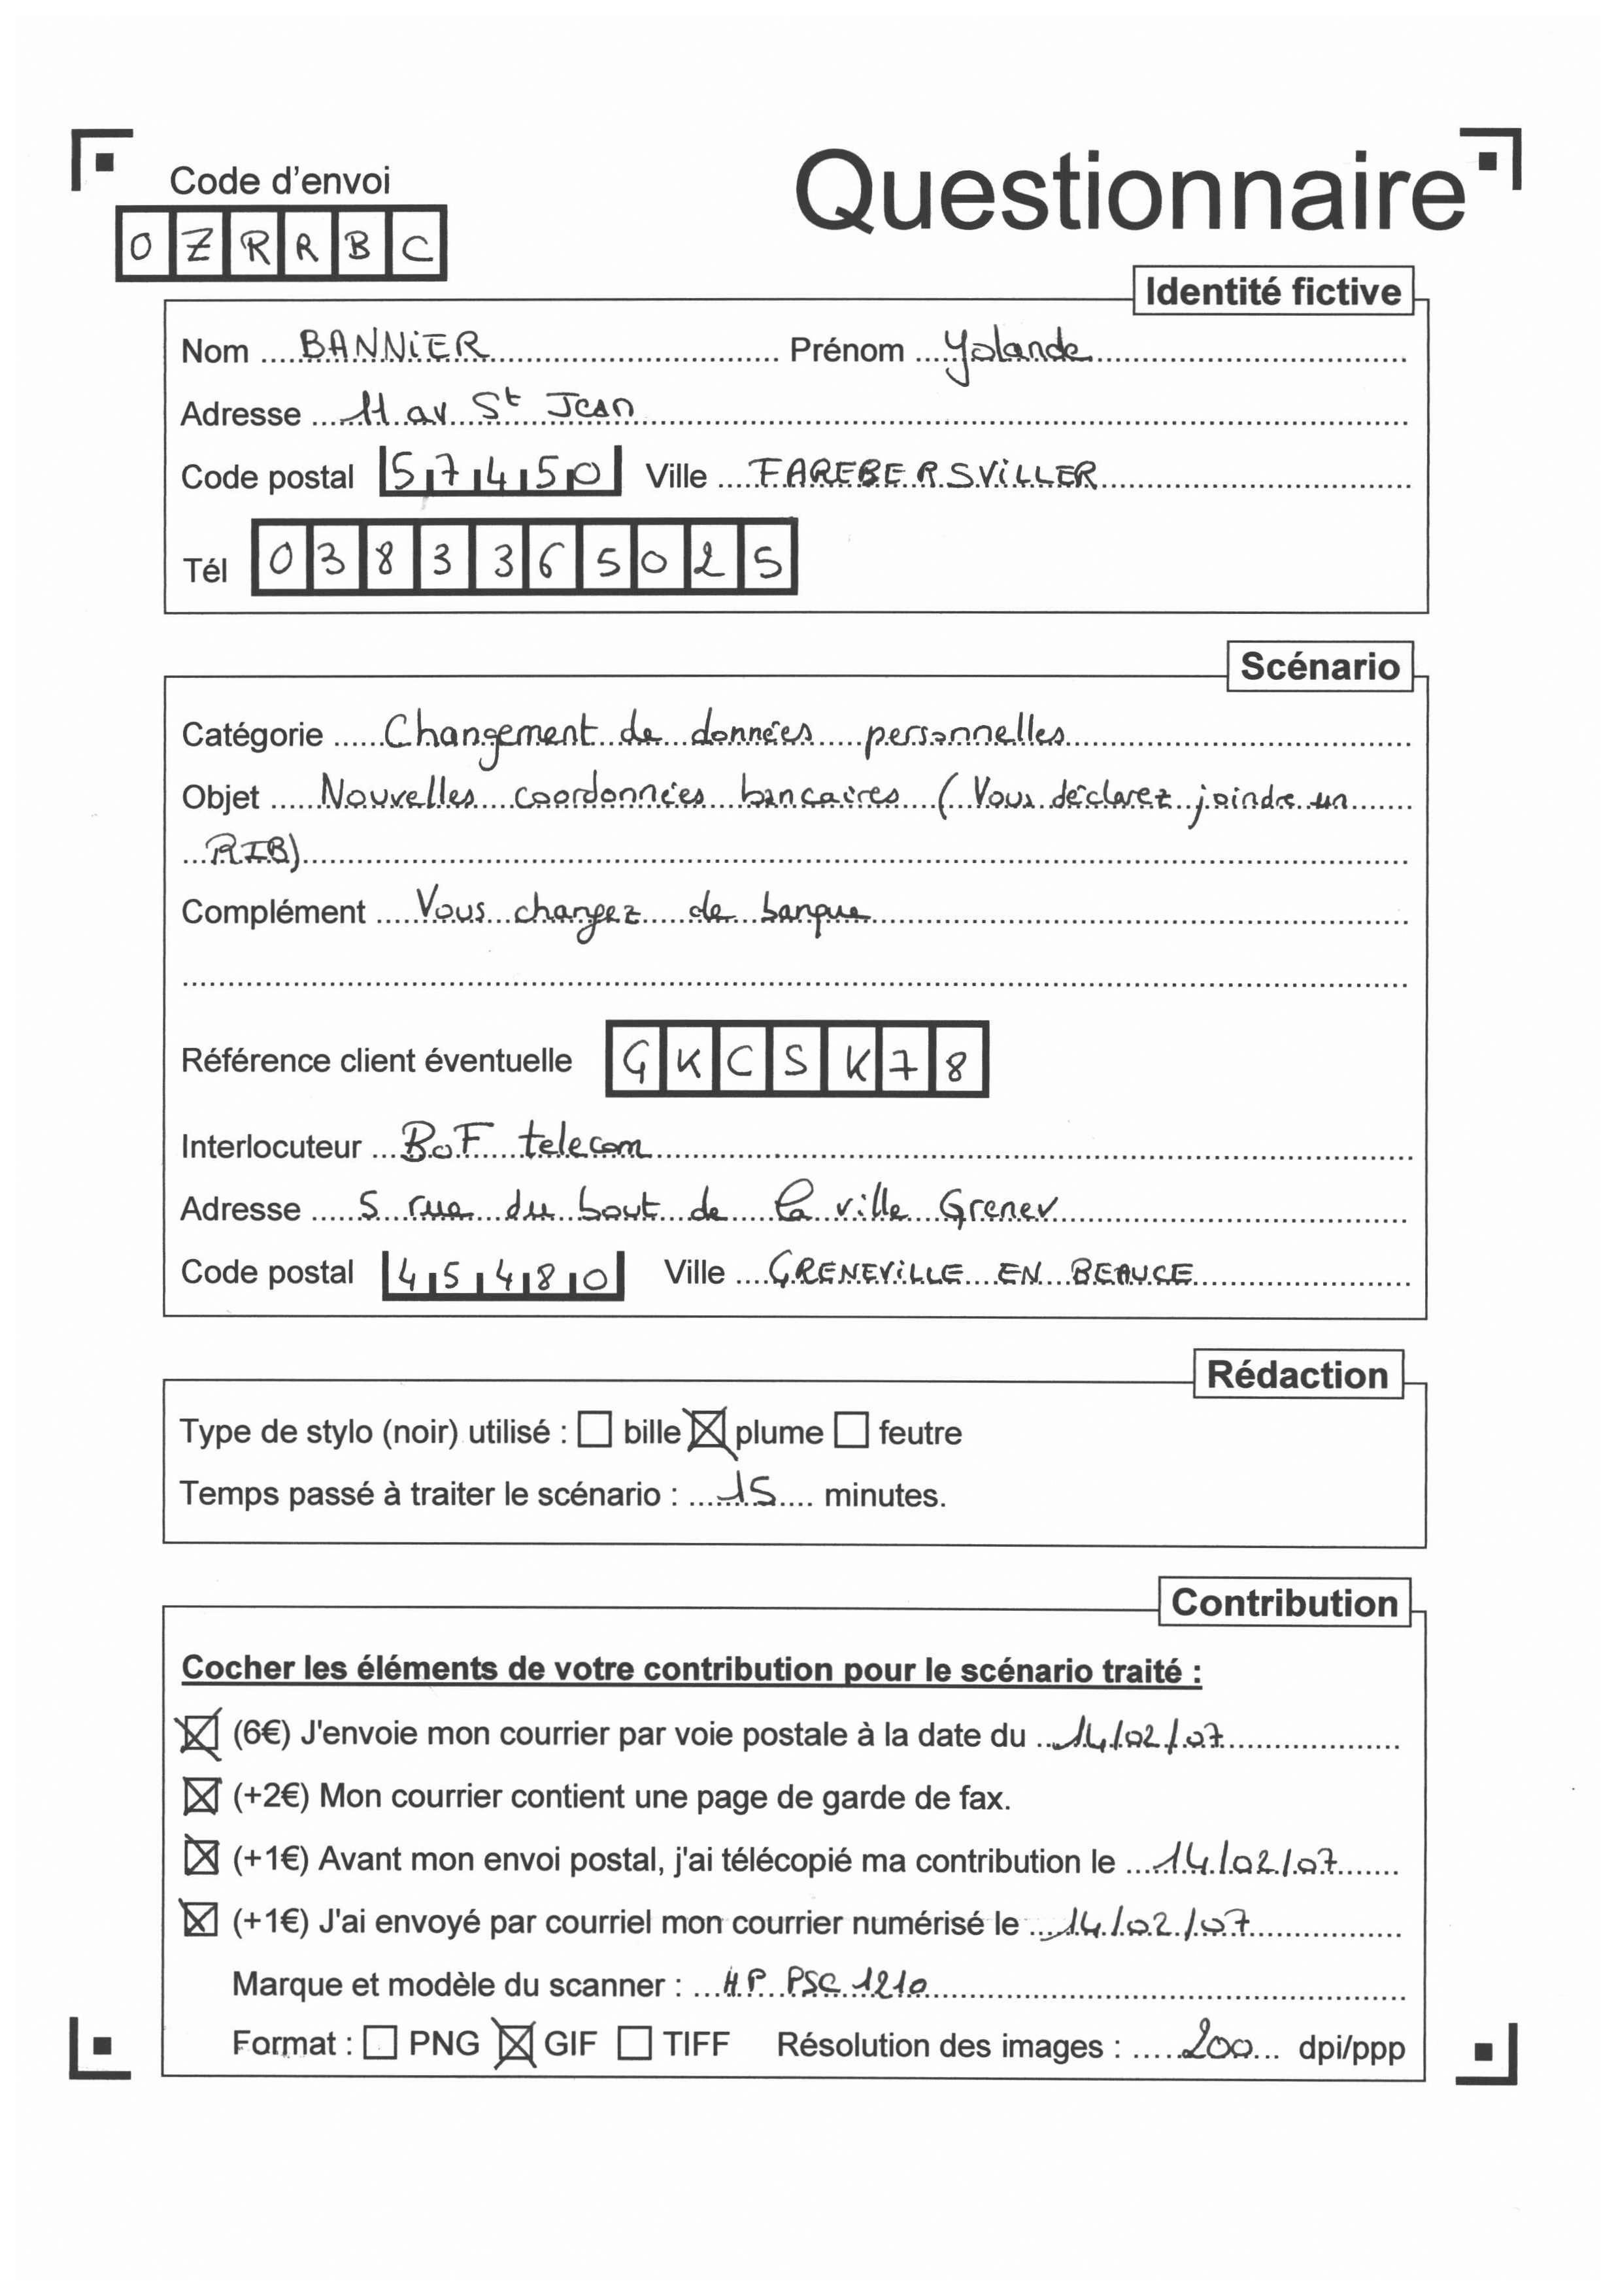 Code d'envoi
Questionnaire
OZRRBC
Identité fictive
Nom BANNiER Prénom Yolande
Adresse 11 av St Jean
Code postal 57450 Ville FAREBERSViLLER
Tél 0383365025
Scénario
Catégorie Changement de données personnelles
Objet Nouvelles coordonnées bancaires (Vous déclarez joindre un
RIB)
Complément Vous changez de banque
Référence client éventuelle GKCSK78
Interlocuteur BoF telecom
Adresse 5 rue du bout de la ville Grenev
Code postal 45480 Ville GRENEViLLE EN BEAUCE
Rédaction
Type de stylo (noir) utilisé : ☐ bille ☒ plume ☐ feutre
Temps passé à traiter le scénario : 15 minutes.
Contribution
Cocher les éléments de votre contribution pour le scénario traité :
☒ (6€) J'envoie mon courrier par voie postale à la date du 14/02/07
☒ (+2€) Mon courrier contient une page de garde de fax.
☒ (+1€) Avant mon envoi postal, j'ai télécopié ma contribution le 14/02/07
☒ (+1€) J'ai envoyé par courriel mon courrier numérisé le 14/02/07
Marque et modèle du scanner : HP PSC 1210
Format : ☐ PNG ☒ GIF ☐ TIFF Résolution des images : 200 dpi/ppp